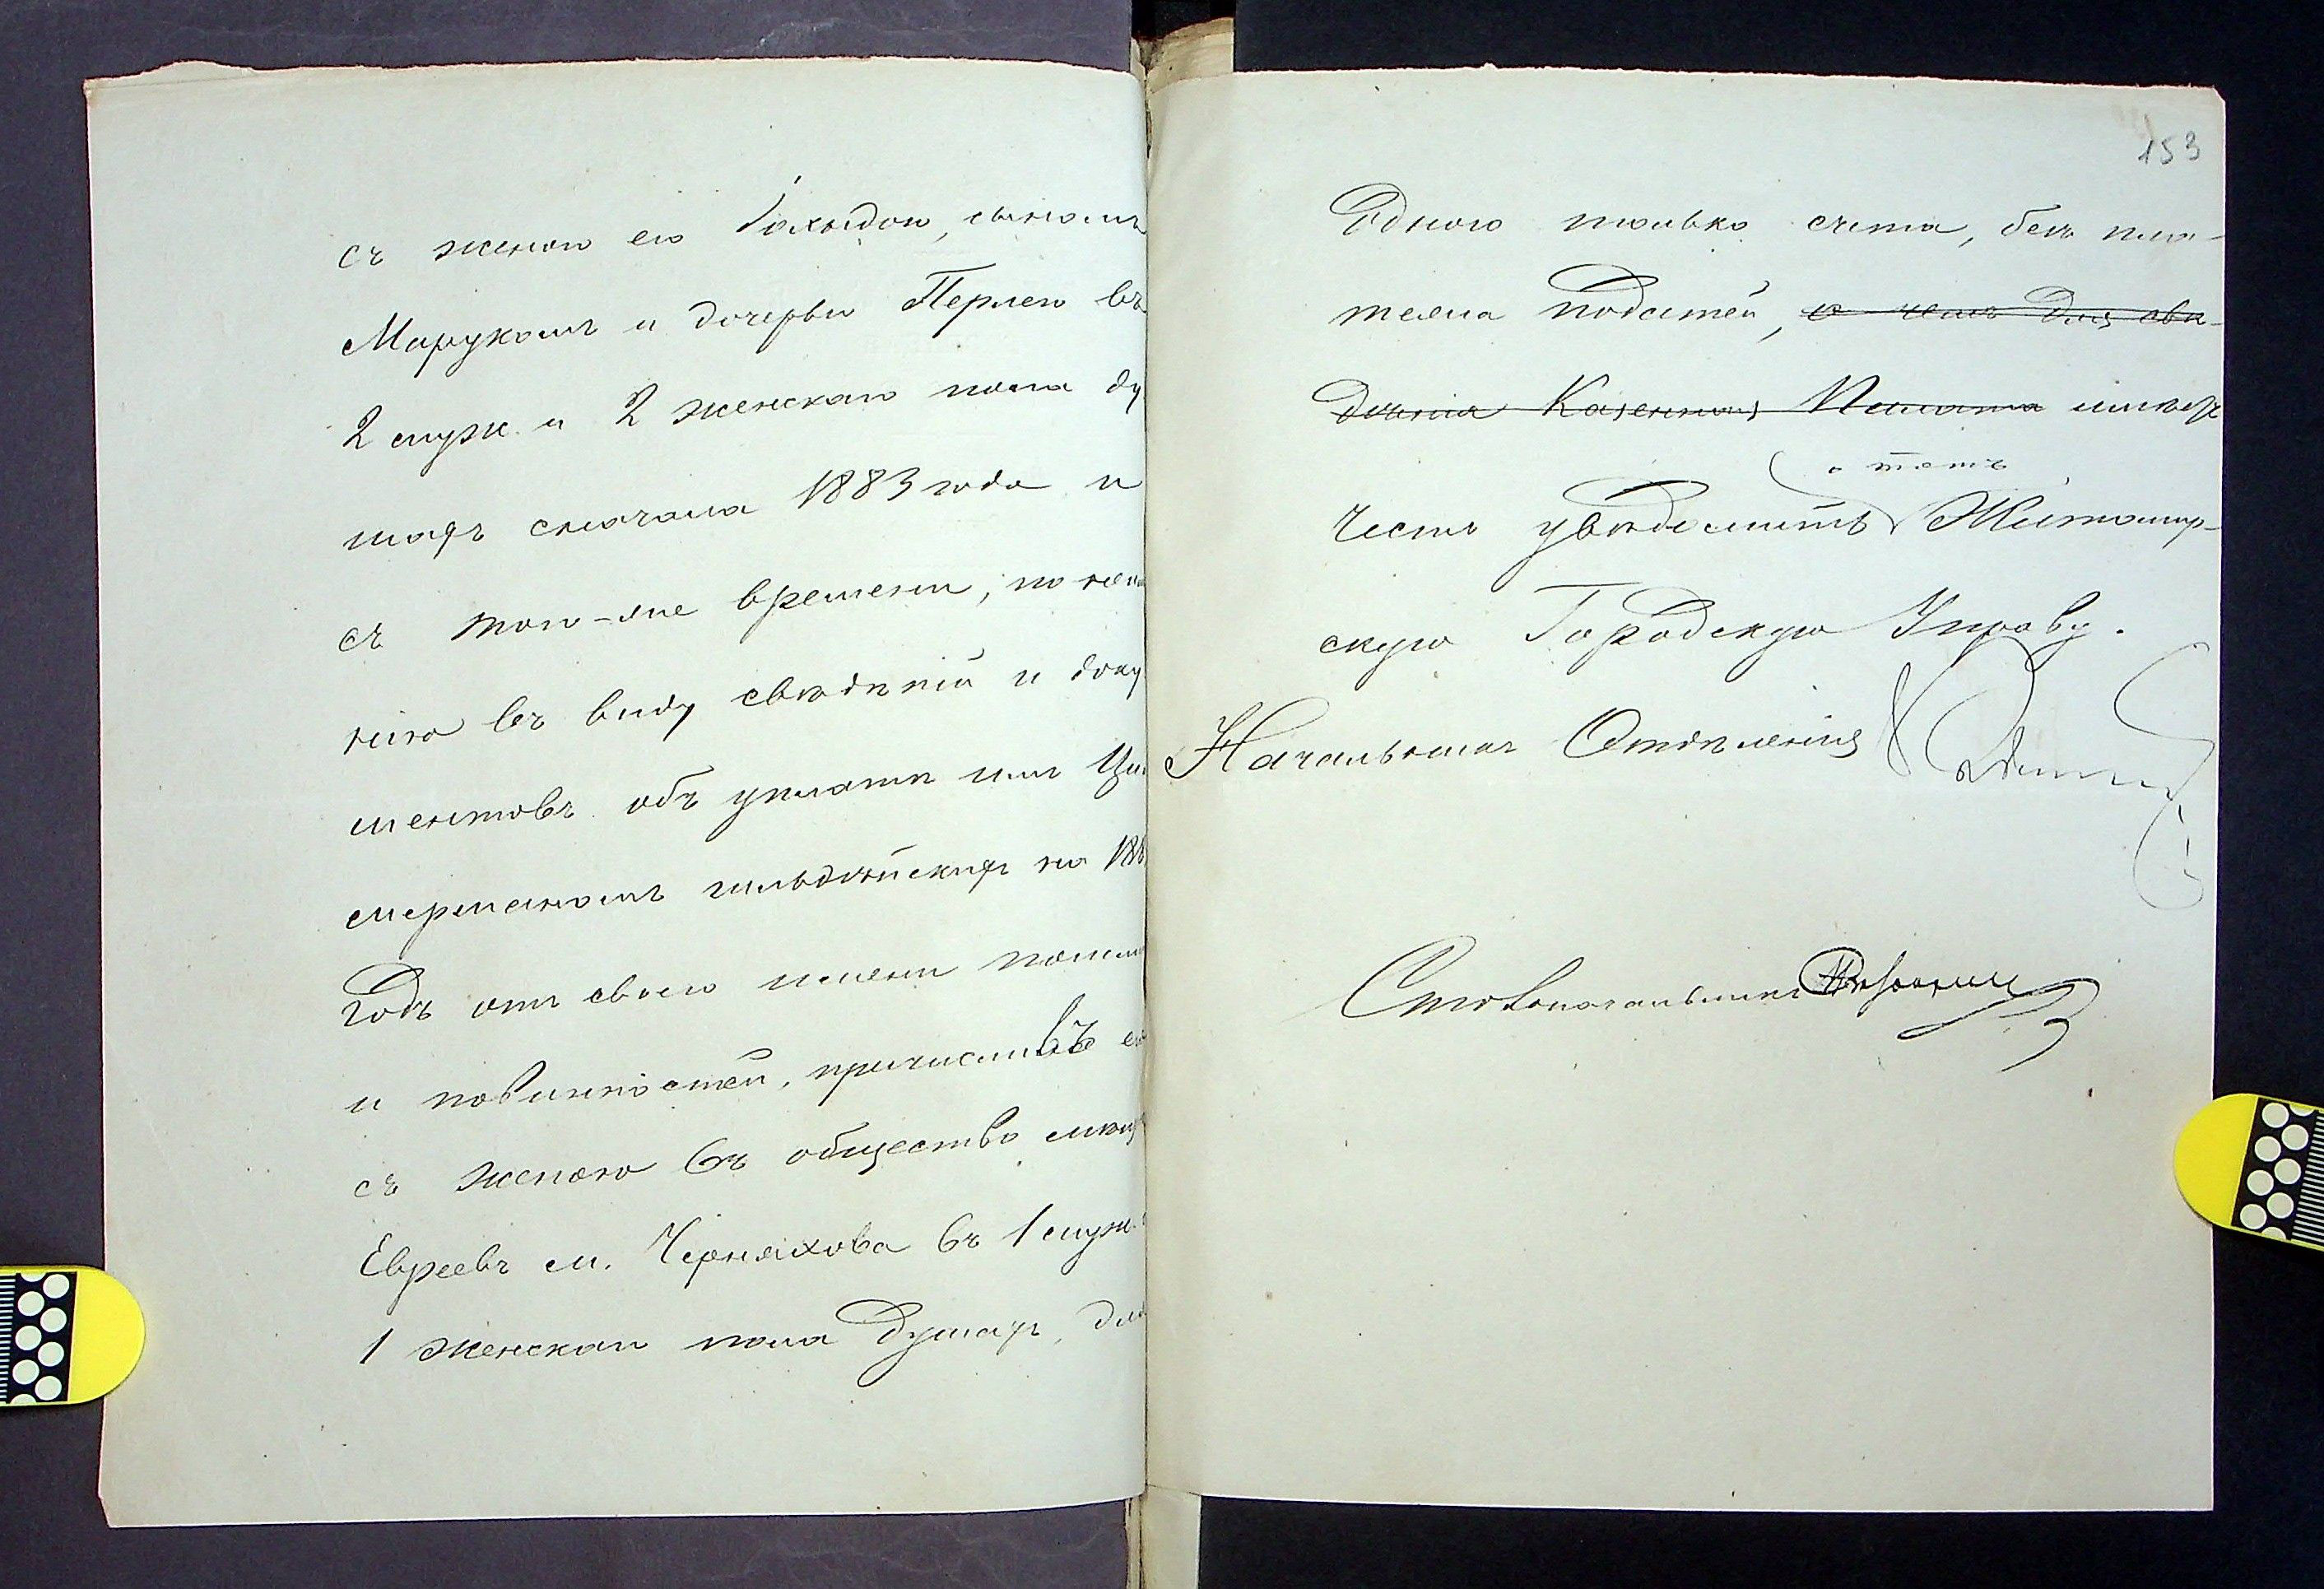 съ женою его сыномъ
Марукомъ и дочерью Перлею въ
2 муж. и 2 женскаго пола ду
шахъ сначала 1883 года и
съ того-же времени, по неи
нію въ виду свѣдѣній и доку
ментовъ объ уплатѣ имъ Ци
мерманомъ гильдейскихъ на 188
годъ отъ своего имени пошли
и повинностей, причисливъ ею
съ женою въ общество мѣщ
Евреевъ м. Черняхова въ 1 муж. и
1 женскаго пола душахъ, для
153
Одного только счета, безъ пла-
тежа податей, о чемъ для свѣ-
дѣнія Казенная Палата имѣетъ
о томъ
честь увѣдомить Житомир-
скую Городскую Управу.
Начальникъ Отдѣленія
Столоначальникъ